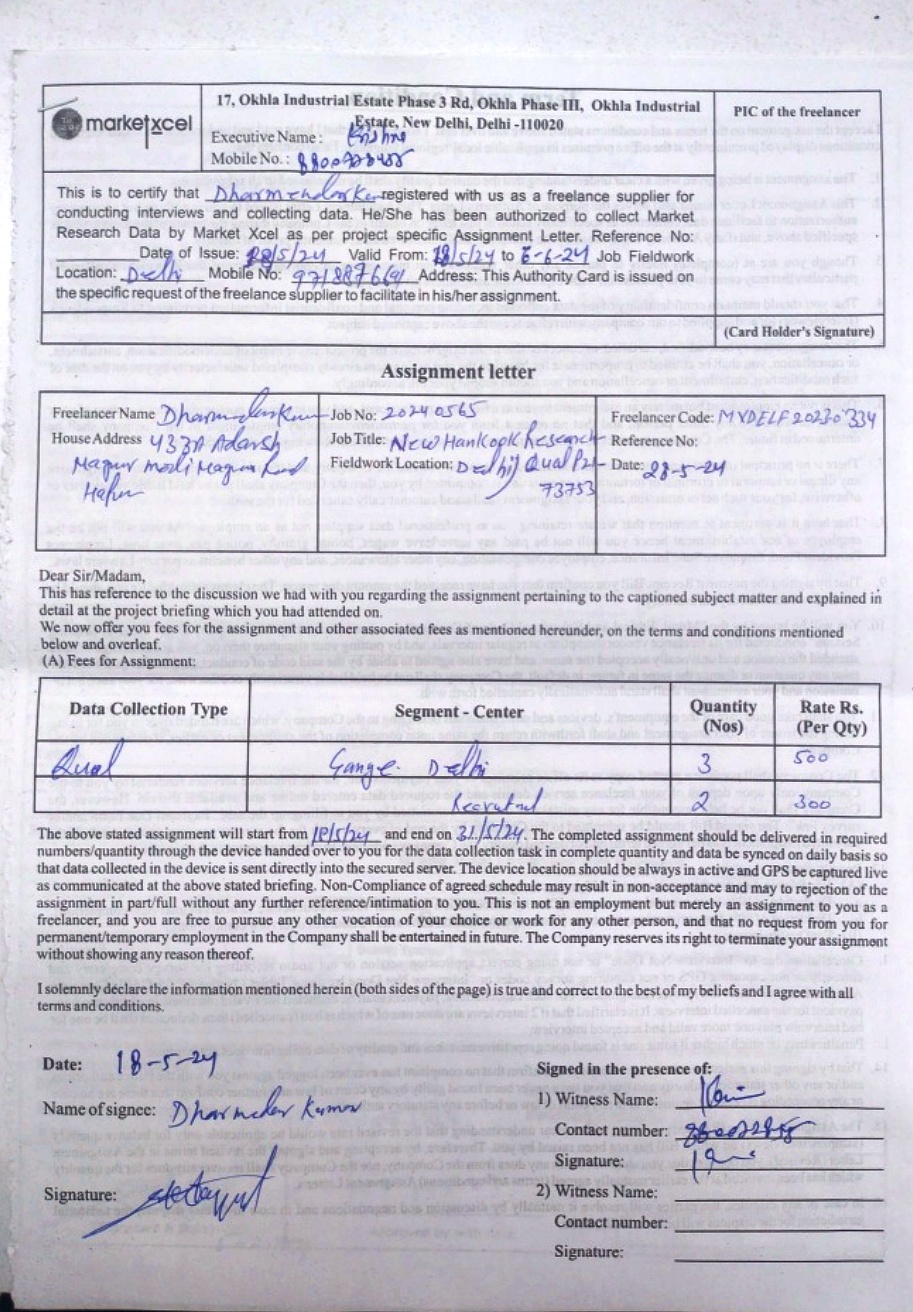 marketxcel
17, Okhla Industrial Estate Phase 3 Rd, Okhla Phase III, Okhla Industrial
Estate, New Delhi, Delhi -110020
Executive Name : Krishna
Mobile No. :
PIC of the freelancer
This is to certify that Dharmendar Ku registered with us as a freelance supplier for
conducting interviews and collecting data. He/She has been authorized to collect Market
Research Data by Market Xcel as per project specific Assignment Letter. Reference No:
Date of Issue: 18/5/24 Valid From: 18/5/24 to 6-6-24 Job Fieldwork
Location: Delhi Mobile No: Address: This Authority Card is issued on
the specific request of the freelance supplier to facilitate in his/her assignment.
(Card Holder's Signature)
Assignment letter
Freelancer Name Dharmendar Kum
House Address 433A Adarsh
Nagar Modi Nagar Road
Hapur
Job No: 20240565
Job Title: New Hankook Research
Fieldwork Location: Delhi Qual
73753
Freelancer Code: MXDELF20230334
Reference No:
Date: 28-5-24
Dear Sir/Madam,
This has reference to the discussion we had with you regarding the assignment pertaining to the captioned subject matter and explained in
detail at the project briefing which you had attended on.
We now offer you fees for the assignment and other associated fees as mentioned hereunder, on the terms and conditions mentioned
below and overleaf.
(A) Fees for Assignment:
Data Collection Type Segment - Center Quantity (Nos) Rate Rs. (Per Qty)
Qual Delhi 3 500
Recruted 2 300
The above stated assignment will start from 18/5/24 and end on 31/5/24. The completed assignment should be delivered in required
numbers/quantity through the device handed over to you for the data collection task in complete quantity and data be synced on daily basis so
that data collected in the device is sent directly into the secured server. The device location should be always in active and GPS be captured live
as communicated at the above stated briefing. Non-Compliance of agreed schedule may result in non-acceptance and may to rejection of the
assignment in part/full without any further reference/intimation to you. This is not an employment but merely an assignment to you as a
freelancer, and you are free to pursue any other vocation of your choice or work for any other person, and that no request from you for
permanent/temporary employment in the Company shall be entertained in future. The Company reserves its right to terminate your assignment
without showing any reason thereof.
I solemnly declare the information mentioned herein (both sides of the page) is true and correct to the best of my beliefs and I agree with all
terms and conditions.
Date: 18-5-24
Name of signee: Dharmendar Kumar
Signature:
Signed in the presence of:
1) Witness Name:
Contact number:
Signature:
2) Witness Name:
Contact number:
Signature: